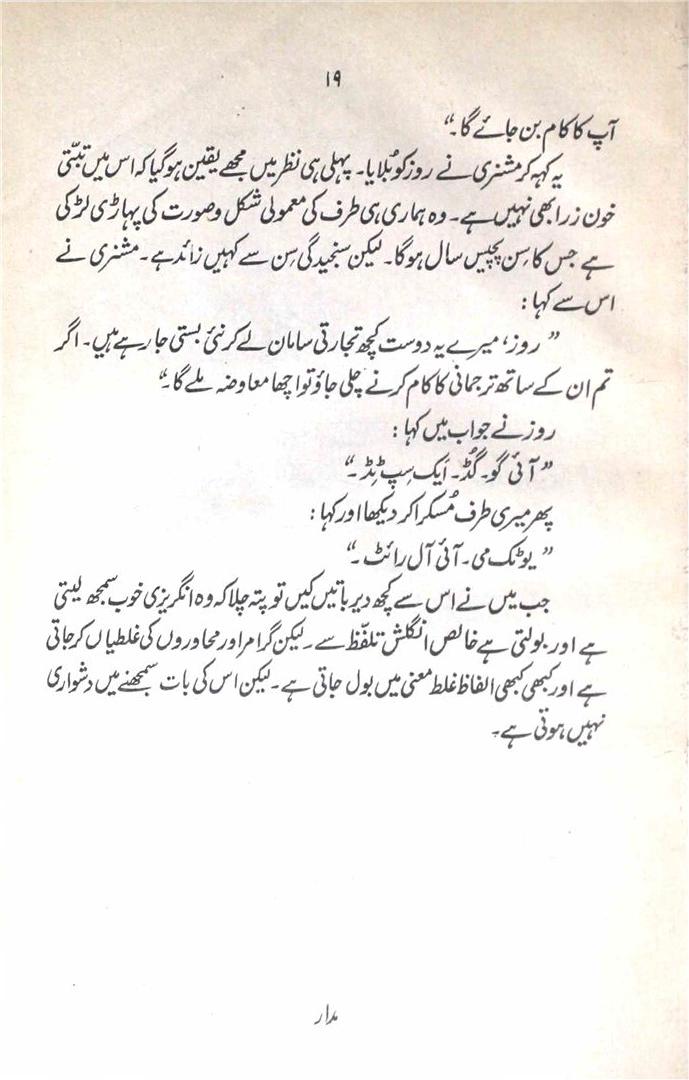 ۱۹
آپ کا کام بن جائے گا۔"
یہ کہہ کر مشنری نے روز کو بُلایا۔ پہلی ہی نظر میں مجھے یقین ہو گیا کہ اس میں تبّتی
خون زرا بھی نہیں ہے۔ وہ ہماری ہی طرف کی معمولی شکل و صورت کی پہاڑی لڑکی
ہے جس کا سِن پچیس سال ہوگا۔ لیکن سنجیدگی سِن سے کہیں زائد ہے۔ مشنری نے
اس سے کہا:
"روز، میرے یہ دوست کچھ تجارتی سامان لے کر نئی بستی جا رہے ہیں۔ اگر
تم ان کے ساتھ ترجمانی کا کام کرنے چلی جاؤ تو اچھا معاوضہ ملے گا۔"
روز نے جواب میں کہا:
"آئی گو۔ گُڈ۔ ایک سِپ ٹِڈ۔"
پھر میری طرف مُسکرا کر دیکھا اور کہا:
"یو ٹک می۔ آئی آل رائٹ۔"
جب میں نے اس سے کچھ دیر باتیں کیں تو پتہ چلا کہ وہ انگریزی خوب سمجھ لیتی
ہے اور بولتی ہے خالص انگلش تلفّظ سے۔ لیکن گرامر اور محاوروں کی غلطیاں کر جاتی
ہے اور کبھی کبھی الفاظ غلط معنی میں بول جاتی ہے۔ لیکن اس کی بات سمجھنے میں دشواری
نہیں ہوتی ہے۔
مدار